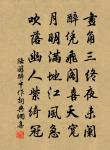 畫角三終夜未闌
醉憑飛閣喜天寬
月明滿地江風急
吹落幽人紫綺冠
陸游醉中作詞典網書